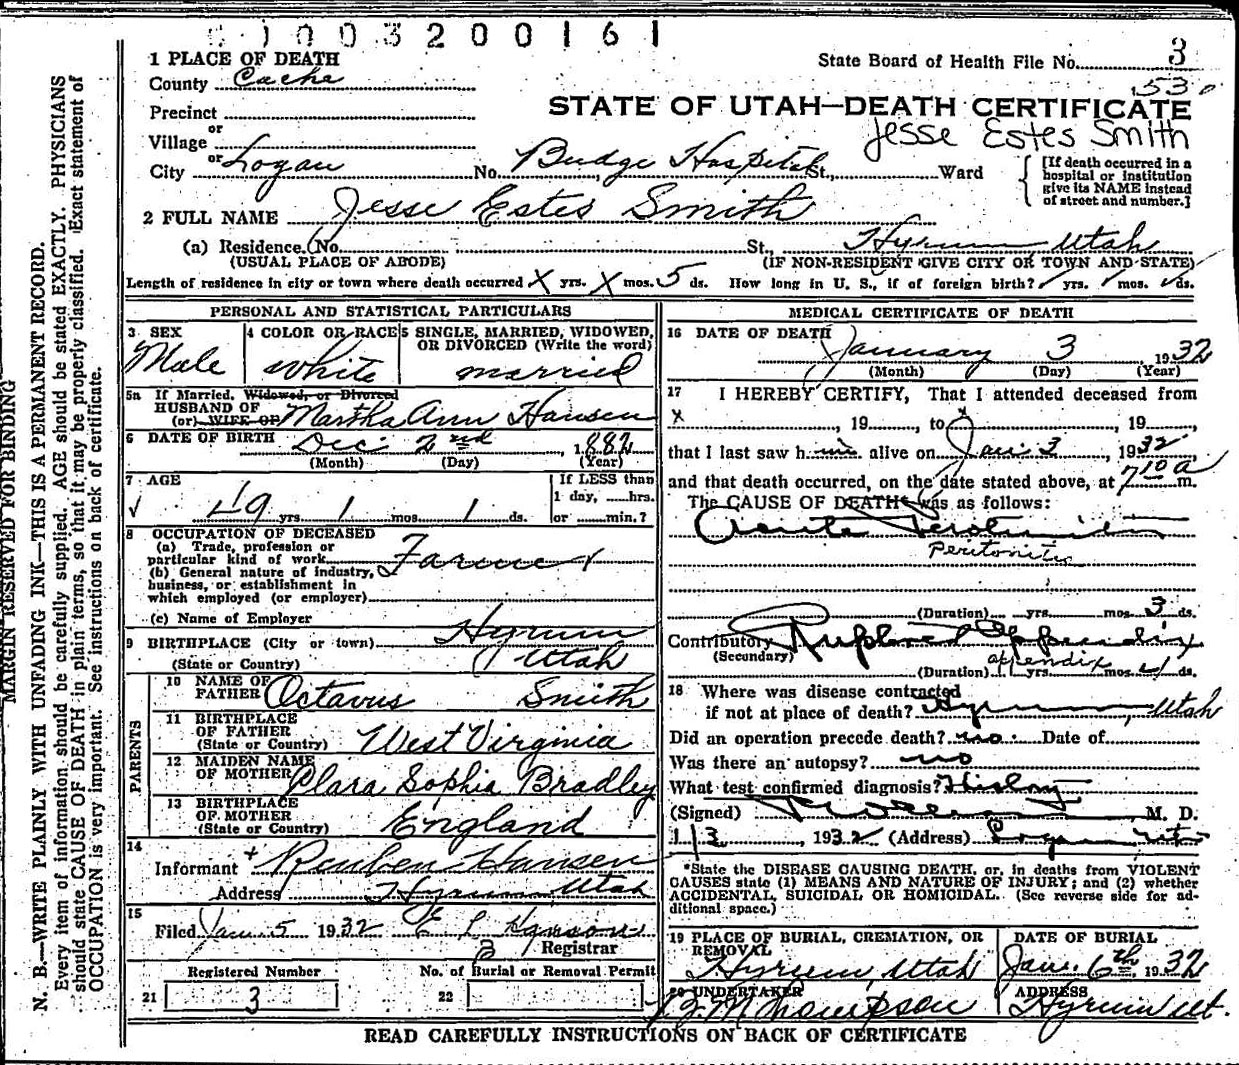 1003200161
1 PLACE OF DEATH
State Board of Health File No. 3
County Cache
530
Precinct
STATE OF UTAH—DEATH CERTIFICATE
or
Village
Jesse Estes Smith
or
City Logan No. Budge Hospital St., Ward
[If death occurred in a
hospital or institution
give its NAME instead
of street and number.]
2 FULL NAME Jesse Estes Smith
(a) Residence. (No. St., Hyrum Utah
(USUAL PLACE OF ABODE) (IF NON-RESIDENT GIVE CITY OR TOWN AND STATE)
Length of residence in city or town where death occurred X yrs. X mos. 5 ds. How long in U. S., if of foreign birth? yrs. mos. ds.
PERSONAL AND STATISTICAL PARTICULARS
3 SEX
Male
4 COLOR OR RACE
white
5 SINGLE, MARRIED, WIDOWED,
OR DIVORCED (Write the word)
married
5a If Married, Widowed, or Divorced
HUSBAND OF
(or) WIFE OF Martha Ann Hansen
6 DATE OF BIRTH Dec 2nd, 1882
(Month) (Day) (Year)
7 AGE
49 yrs. 1 mos. 1 ds.
If LESS than
1 day, hrs.
or min.?
8 OCCUPATION OF DECEASED
(a) Trade, profession or
particular kind of work Farmer
(b) General nature of industry,
business, or establishment in
which employed (or employer)
(c) Name of Employer
9 BIRTHPLACE (City or town) Hyrum
(State or Country) Utah
PARENTS
10 NAME OF
FATHER Octavus Smith
11 BIRTHPLACE
OF FATHER
(State or Country) West Virginia
12 MAIDEN NAME
OF MOTHER Clara Sophia Bradley
13 BIRTHPLACE
OF MOTHER
(State or Country) England
14
Informant Reuben Hansen
Address Hyrum, Utah
15
Filed Jan. 5 1932
Registrar
Registered Number
21 3
No. of Burial or Removal Permit
22
MEDICAL CERTIFICATE OF DEATH
16 DATE OF DEATH
January 3, 1932
(Month) (Day) (Year)
17 I HEREBY CERTIFY, That I attended deceased from
X, 19, to, 19,
that I last saw him alive on Jan 3, 1932
and that death occurred, on the date stated above, at 7 10 a m.
The CAUSE OF DEATH was as follows:
Acute Peritonitis
Peritonitis
(Duration) yrs. mos. 3 ds.
Contributory Ruptured Appendix
(Secondary)
appendix
(Duration) yrs. mos. ds.
18 Where was disease contracted
if not at place of death? Hyrum, Utah
Did an operation precede death? no. Date of
Was there an autopsy? no
What test confirmed diagnosis? History
(Signed) M. D.
1/3, 1932 (Address) Logan Utah
*State the DISEASE CAUSING DEATH, or, in deaths from VIOLENT
CAUSES state (1) MEANS AND NATURE OF INJURY; and (2) whether
ACCIDENTAL, SUICIDAL OR HOMICIDAL. (See reverse side for ad-
ditional space.)
19 PLACE OF BURIAL, CREMATION, OR
REMOVAL
Hyrum, Utah
DATE OF BURIAL
Jan. 6th, 1932
20 UNDERTAKER
Thompson
ADDRESS
Hyrum Ut.
READ CAREFULLY INSTRUCTIONS ON BACK OF CERTIFICATE
MARGIN RESERVED FOR BINDING
N. B.—WRITE PLAINLY WITH UNFADING INK—THIS IS A PERMANENT RECORD.
Every item of information should be carefully supplied. AGE should be stated EXACTLY. PHYSICIANS
should state CAUSE OF DEATH in plain terms, so that it may be properly classified. Exact statement of
OCCUPATION is very important. See instructions on back of certificate.